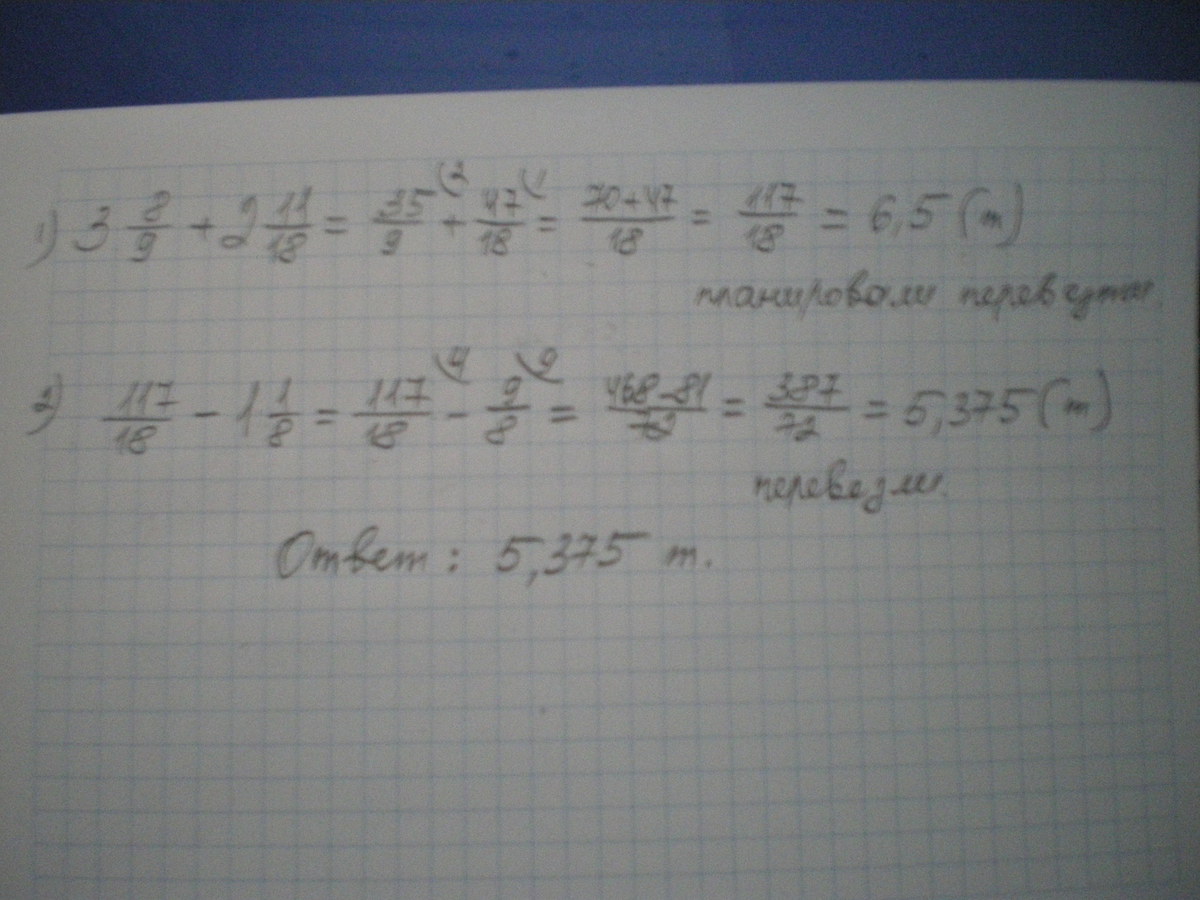 1) 3 8/9 + 2 11/18 = 35/9 (2 + 47/18 (1 = 70+47/18 = 117/18 = 6,5 (т)
планировали перевезти.
2) 117/18 - 1 1/8 = 117/18 (4 - 9/8 (9 = 468-81/72 = 387/72 = 5,375 (т)
перевезли.
Ответ: 5,375 т.